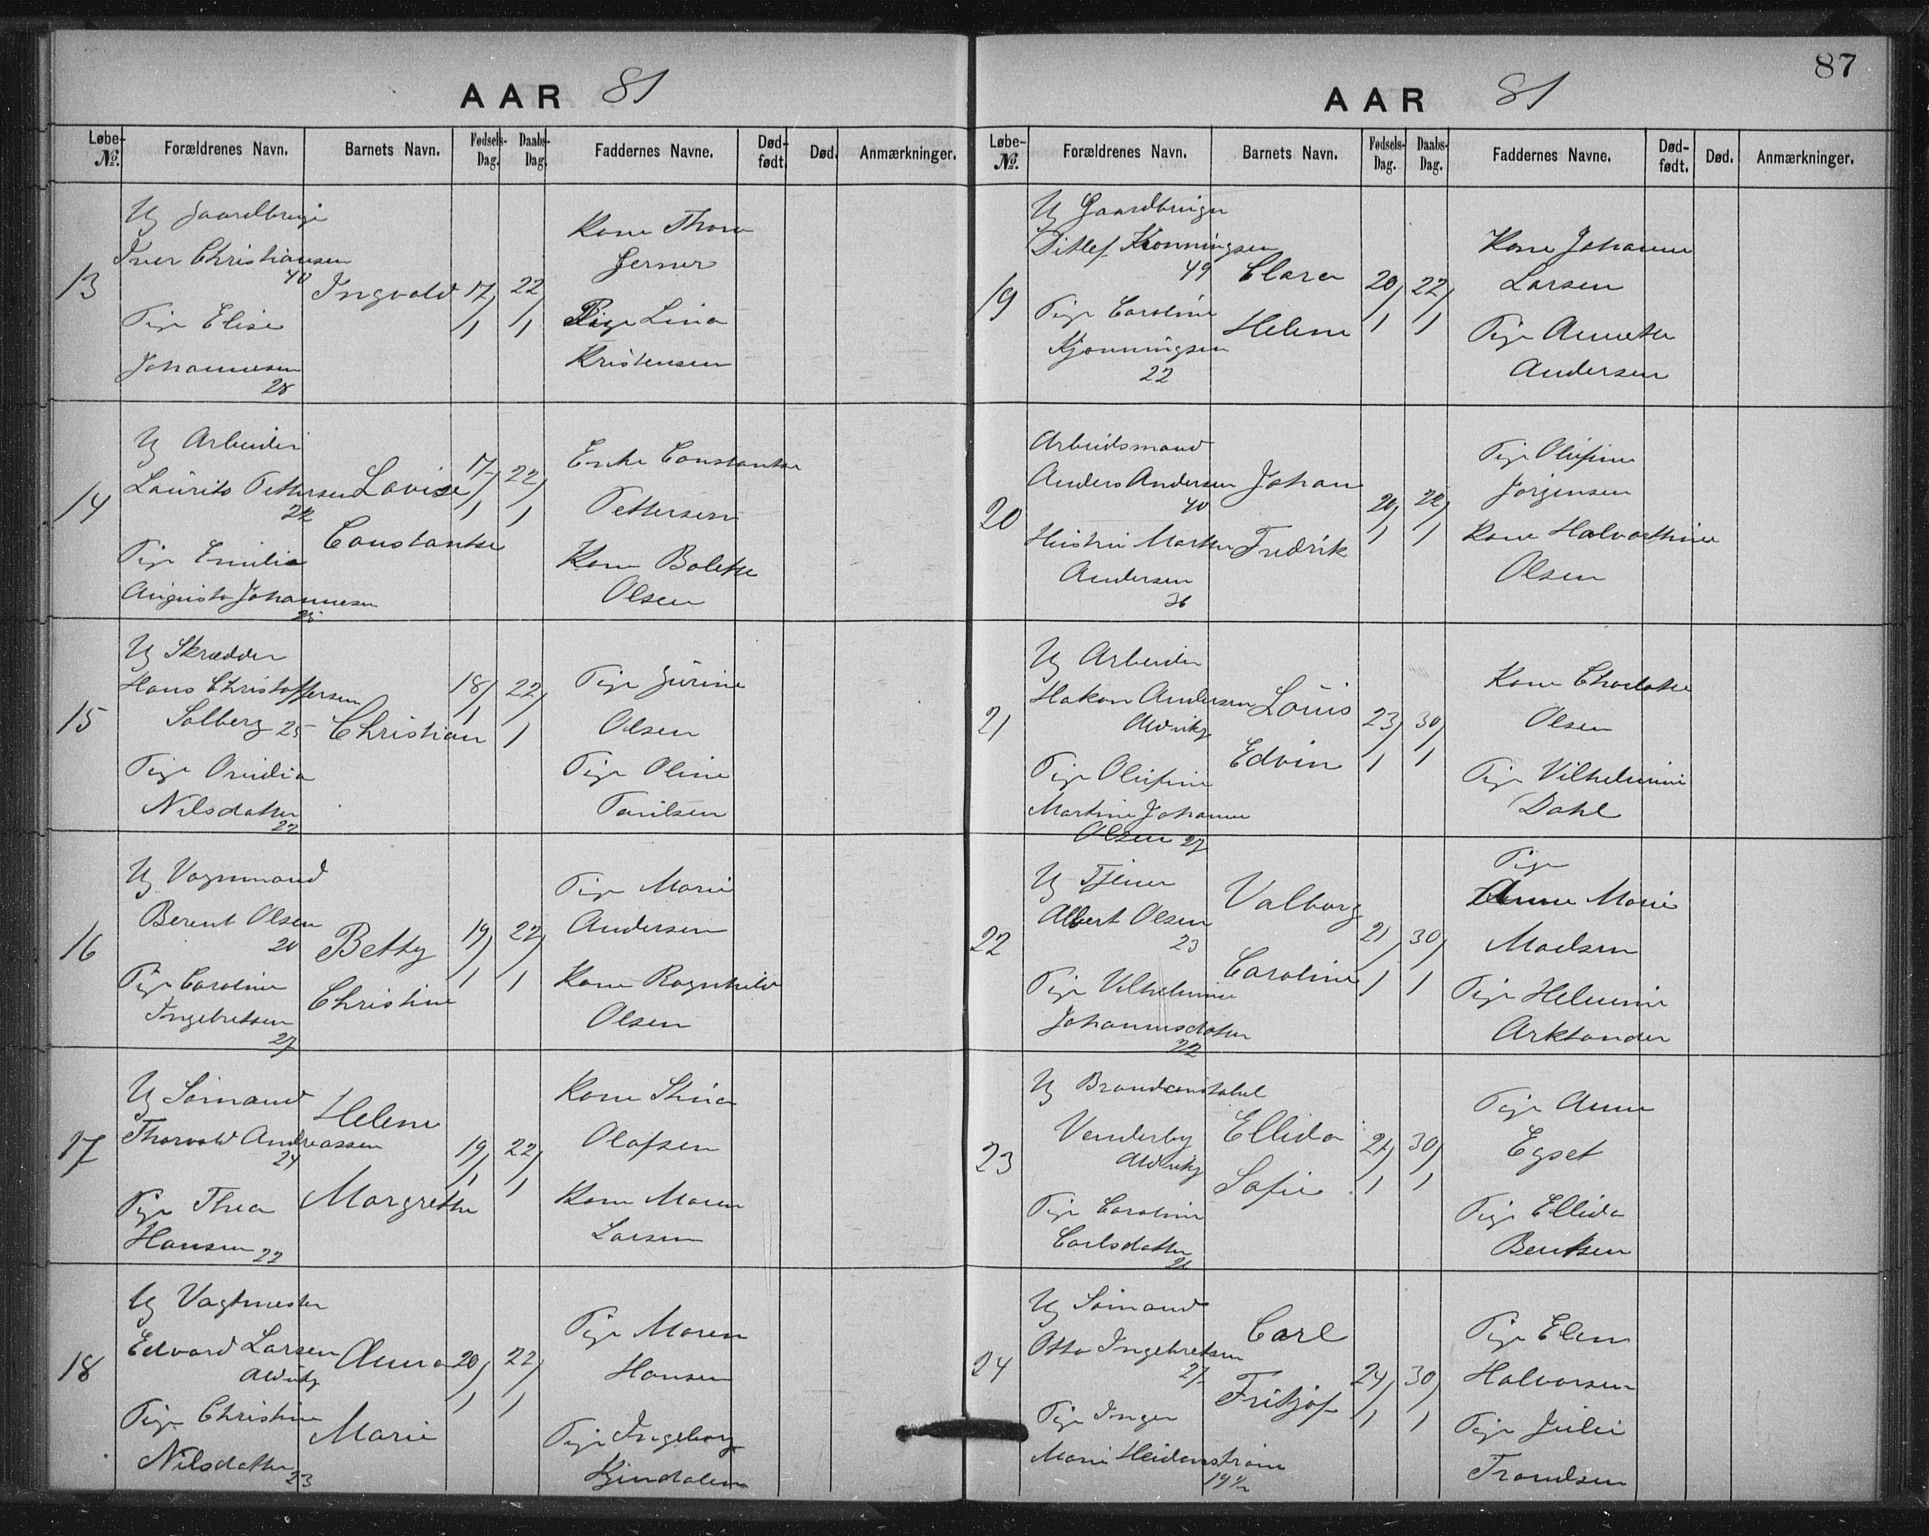 AAR 81
Løbe-No. Forældrenes Navn. Barnets Navn. Fødsels-Dag. Daabs-Dag. Faddernes Navne. Død-født. Død. Anmærkninger.
13
Ug
Iver Christiansen
40
Pige Elise
Johannesen
28
Ingvald
17/1 22/1
Kone Thora
Jerner
Pige Lina
Kristensen
14
Ug Arbeider
Laurits Pettersen
22
Pige Emilie
Augusta Johannesen
25
Lovise
Constantse
17/1 22/1
Enke Constantse
Pettersen
Kone Bolette
Olsen
15
Ug Skrædder
Hans Christoffersen
Solberg 25
Pige Ovidia
Nilsdatter
22
Christian
18/1 22/1
Pige Jurine
Olsen
Pige Oline
Paulsen
16
Ug Vognmand
Berent Olsen
20
Pige Caroline
Ingebretsen
27
Betty
Christine
19/1 22/1
Pige Marie
Andersen
Kone Ragnhild
Olsen
17
Ug Sømand
Thorvald Andreassen
24
Pige Thea
Hansen 22
Helene
Margrethe
19/1 22/1
Kone Stina
Olafsen
Kone Maren
Larsen
18
Ug Vagtmester
Edvard Larsen
Pige Christine
Nilsdatter
23
Anna
Marie
20/1 22/1
Pige Maren
Hansen
Pige Ingeborg
87
AAR 81
Løbe-No. Forældrenes Navn. Barnets Navn. Fødsels-Dag. Daabs-Dag. Faddernes Navne. Død-født. Død. Anmærkninger.
19
Ug Gaardbruger
Ditlef Kronningsen
49
Pige Caroline
Kjonningsen
22
Clara
Helene
20/1 22/1
Kone Johanne
Larsen
Pige Annette
Andersen
20
Arbeidsmand
Anders Andersen
40
Hustru Marthe
Andersen
36
Johan
Fredrik
20/1 22/1
Pige Olufine
Jørgensen
Kone Halvarthine
Olsen
21
Ug Arbeider
Hakon Andersen
Pige Olufine
Martine Johanne
Olsen 27
Louis
Edvin
23/1 30/1
Kone Charlotte
Olsen
Pige Vilhelmine
Dahl
22
Ug Tjener
Albert Olsen
23
Pige Vilhelmine
Johannsdatter
22
Valborg
Caroline
21/1 30/1
Pige
Anne Marie
Madsen
Pige Helmine
Arktander
23
Ug Brandconstabel
Venderby
Pige Caroline
Carlsdatter
21
Ellida
Sofie
21/1 30/1
Pige Anne
Egset
Pige Ellida
Bentsen
24
Ug Sømand
Otto Ingebretsen
27
Pige Inger
Marie Heidenstrøm
19½
Carl
Fritjof
24/1 30/1
Pige Elen
Halvorsen
Pige Julie
Trondsen